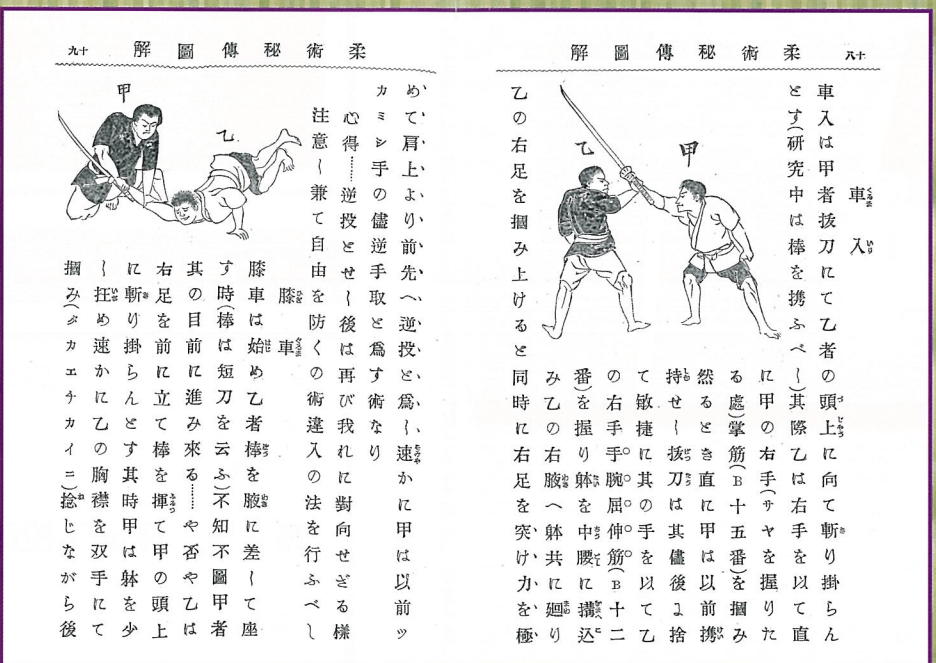 十八
柔術秘傳圖解
車入
車入は甲者抜刀にて乙者の頭上に向て斬り掛らん
とす(研究中は棒を携ふべし)其際乙は右手を以て直
に甲の右手(サヤを握りた
る處)掌筋(B十五番)を掴み
然るとき直に甲は以前携
持せし抜刀は其儘後よ捨
て敏捷に其の手を以て乙
の右手手腕屈伸筋(B十二
番)を握り躰を中腰に搆込
み乙の右腋へ躰共に廻り
乙の右足を掴み上けると同時に右足を突け力を極
甲
乙
柔術秘傳圖解
十九
めて肩上より前先へ逆投と爲し速かに甲は以前ッ
カミシ手の儘逆手取と爲す術なり
心得……逆投とせし後は再び我れに對向せざる樣
注意し兼て自由を防ぐの術違入の法を行ふべし
膝車
膝車は始め乙者棒を腋に差して座
す時(棒は短刀を云ふ)不知不圖甲者
其の目前に進み來る……や否や乙は
右足を前に立て棒を揮て甲の頭上
に斬り掛らんとす其時甲は躰を少
し抂め速かに乙の胸襟を双手にて
掴み(タカエチカイニ)捻じながら後
乙
甲